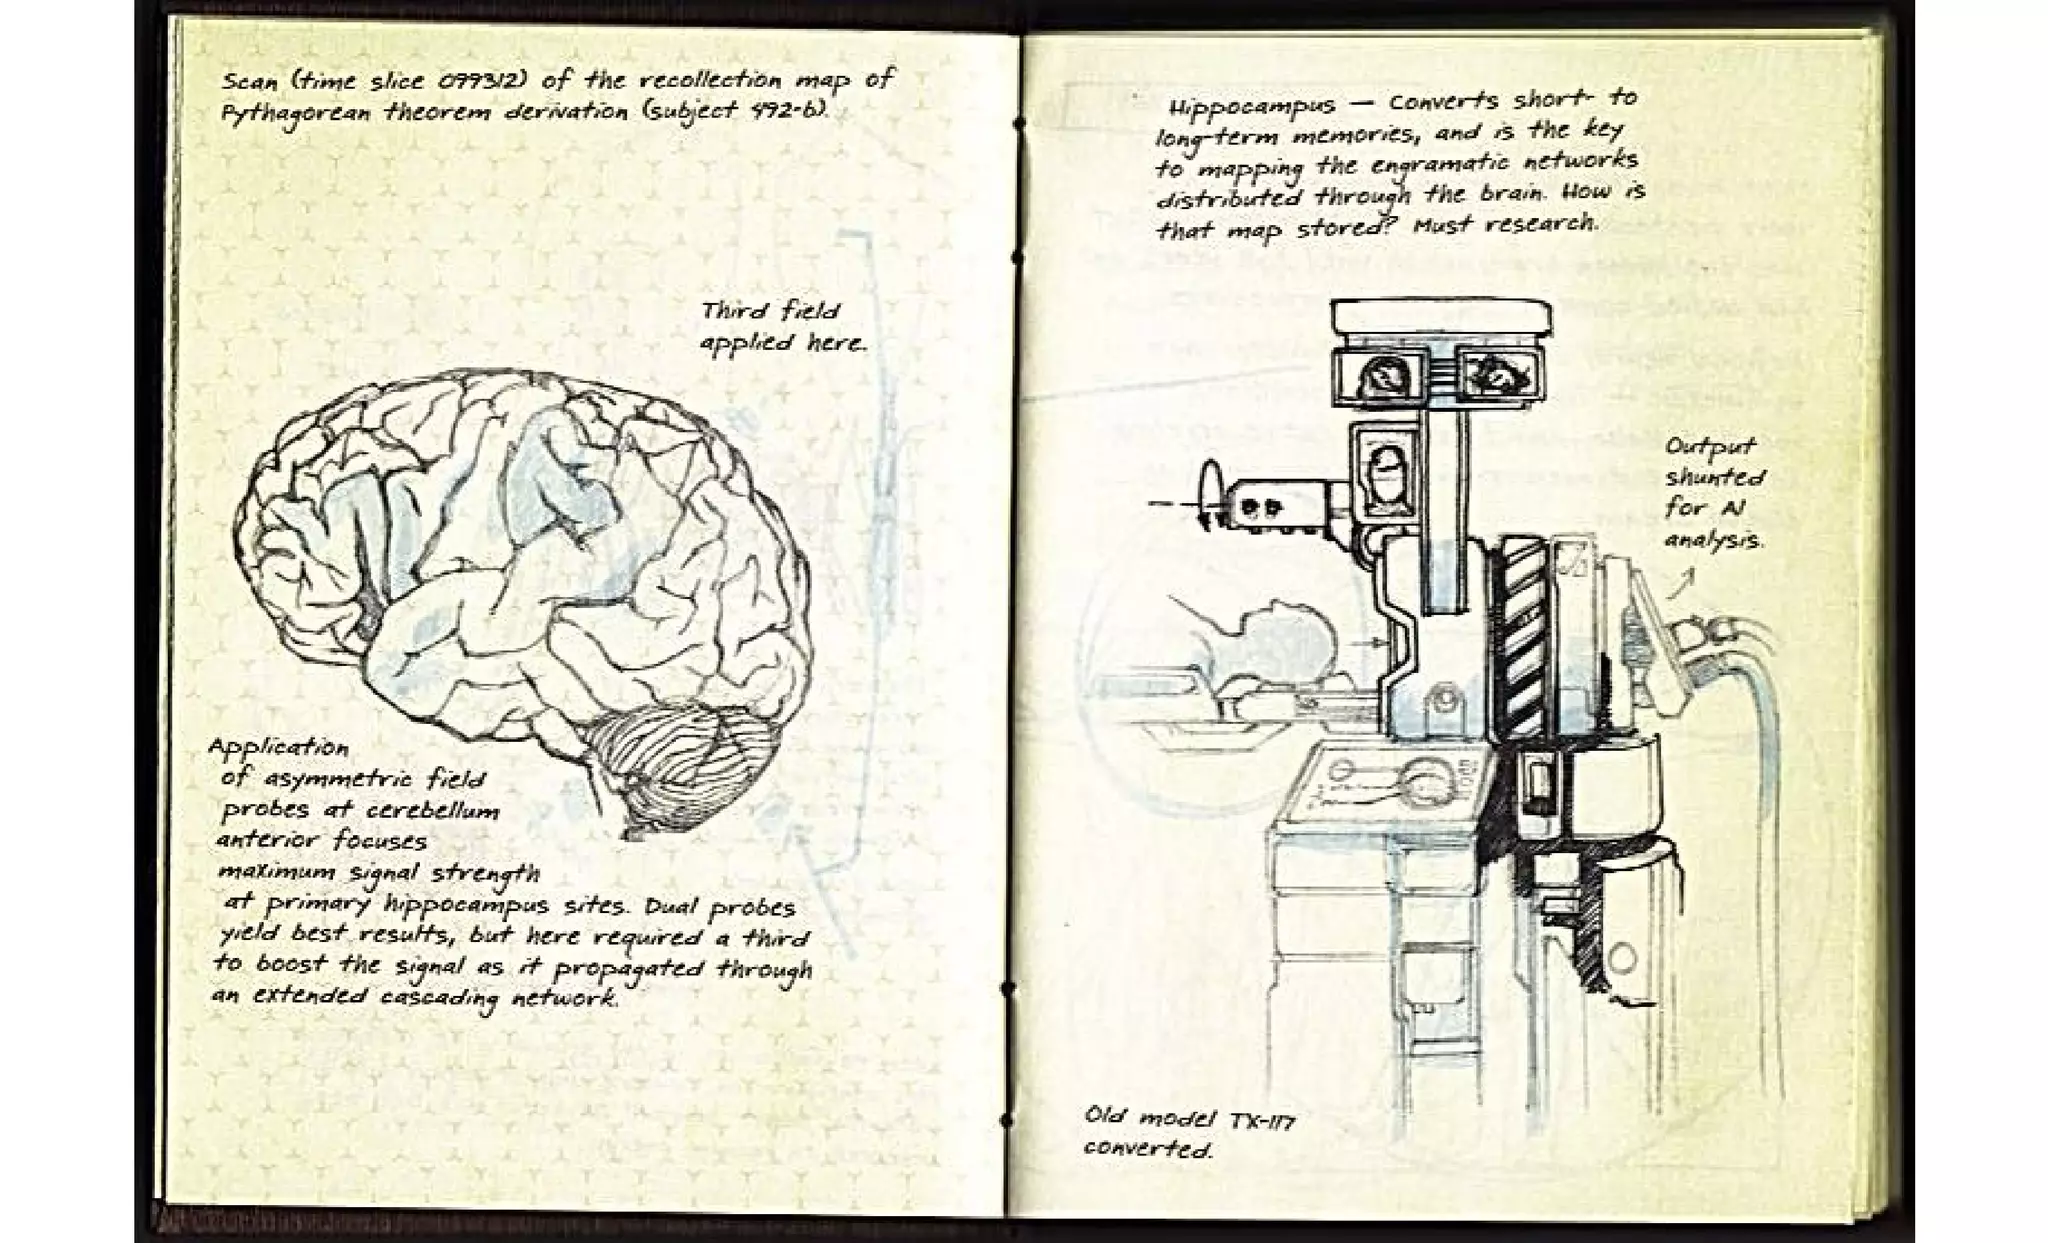 Scan (time slice 099312) of the recollection map of
Pythagorean theorem derivation (subject 492-b).
Third field
applied here.
Application
of asymmetric field
probes at cerebellum
anterior focuses
maximum signal strength
at primary hippocampus sites. Dual probes
yield best results, but here required a third
to boost the signal as it propagated through
an extended cascading network.
Hippocampus — Converts short- to
long-term memories, and is the key
to mapping the engramatic networks
distributed through the brain. How is
that map stored? Must research.
Output
shunted
for AI
analysis.
Old model TX-117
converted.